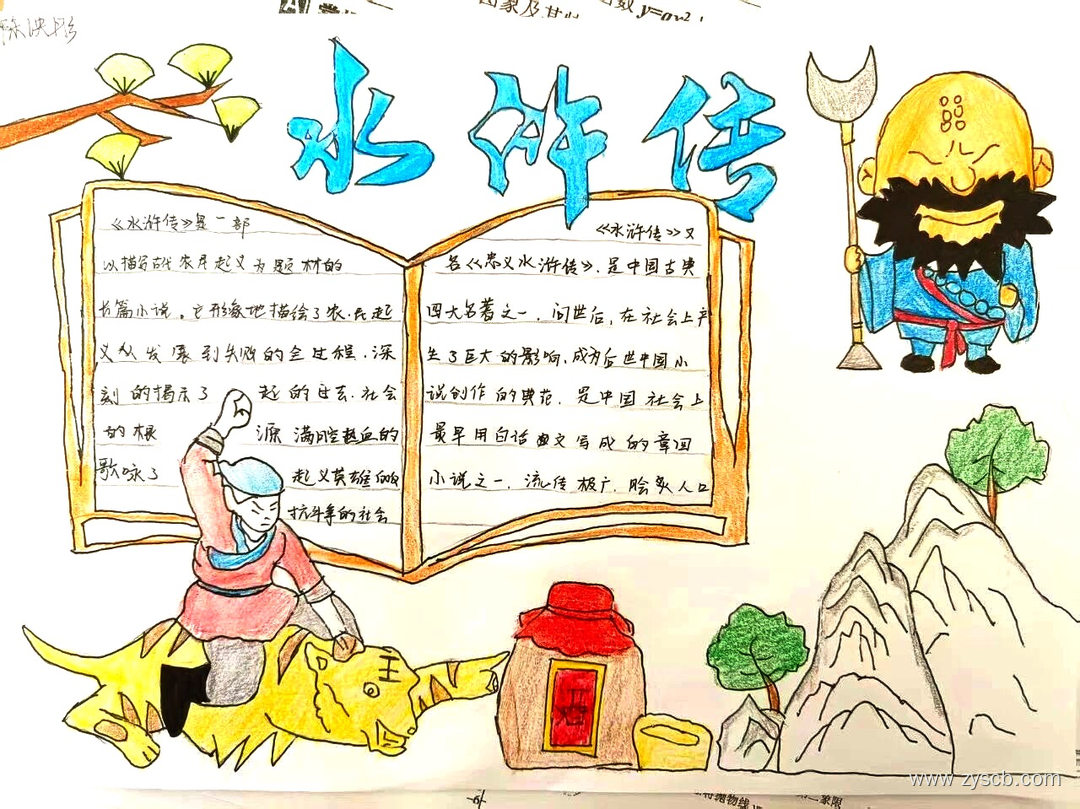 因象及其
数 y=ax²
水浒传
《水浒传》是一部
以描写古代农民起义为题材的
长篇小说。它形象地描绘了农民起
义从发展到失败的全过程,深
刻的揭示了起的社会
的根源满腔热血的
歌咏了起义英雄的
抗斗争的社会
《水浒传》又
名《忠义水浒传》,是中国古典
四大名著之一,问世后,在社会上产
生了巨大的影响,成为后世中国小
说创作的典范,是中国社会上
最早用白话文写成的章回
小说之一,流传极广,脍炙人口
王
酒
www.zyscb.com